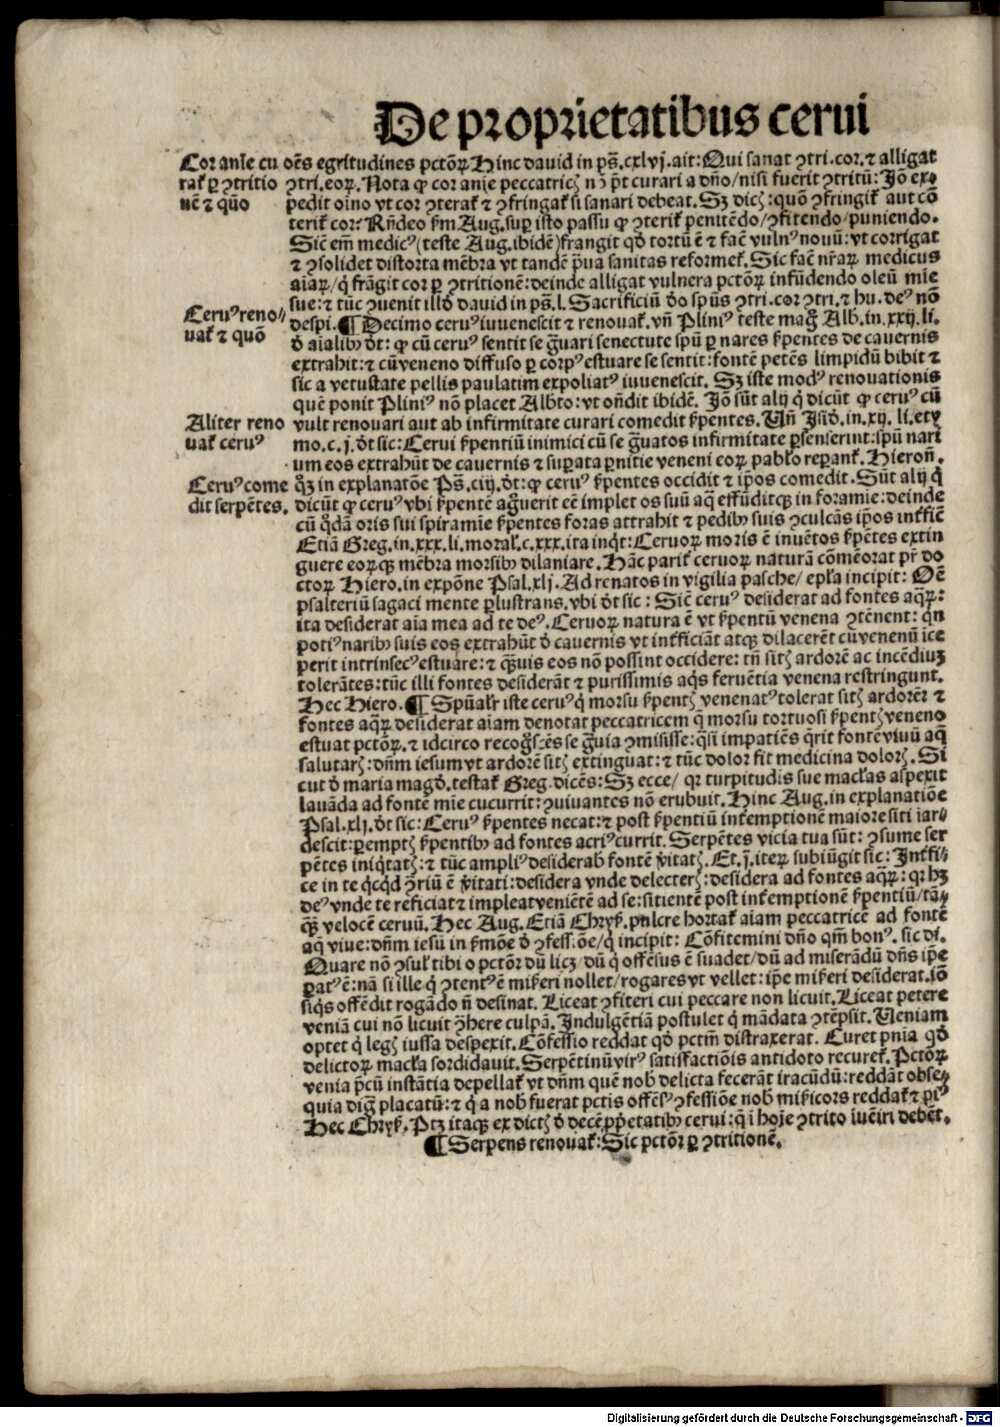 De proprietatibus cerui
Cor anīe cu
rat᷑ ꝑ ꝯtritio
nē ⁊ quō
oēs egritudines pctōꝝ Hinc dauid in ps̄.cxlvj.ait: Qui sanat ꝯtri.cor.⁊ alligat
ꝯtri.eoꝝ. Nota ꝙ cor anīe peccatricꝭ nō pōt curari a dn̄o/nisi fuerit ꝯtritū: Jō ex⸗
pedit oīno vt cor ꝯterat᷑ ⁊ ꝯfringat᷑ si sanari debeat. Sꝫ dicꝭ: quō ꝯfringit᷑ aut cō
terit᷑ cor? Rn̄deo ẜm Aug. suꝑ isto passu ꝙ ꝯterit᷑ penitēdo/ꝯfitendo/puniendo.
Sicē em̄ medicꝰ(teste Aug.ibidē)frangit qd̓ tortū ē ⁊ facē vulnꝰ nouū: vt corrigat
⁊ ꝯsolidet distorta mēbra vt tandē p̄ua sanitas reformet᷑. Sic facē nr̄aꝝ medicus
aīaꝝ/q̇ frāgit cor ꝑ ꝯtritionē: deinde alligat vulnera pctōꝝ infūdendo oleū mīe
sue: ⁊ tūc ꝯuenit illd̓ dauid in ps̄.l. Sacrificiū d̓o spūs ꝯtri.cor ꝯtri.⁊ hu.deꝰ nō
Ceruꝰ reno⸗
uat᷑ ⁊ quō
despi. ¶ Decimo ceruꝰ iuuenescit ⁊ renouat᷑. vn̄ Pliniꝰ teste mag̃ Alb.in.xxij.li.
d̓ aīalibꝰ d̓t: ꝙ cū ceruꝰ sentit se g̃uari senectute spū ꝑ nares ẜpentes de cauernis
extrahit: ⁊ cū veneno diffuso ꝑ corpꝰ estuare se sentit: fontē petēs limpidū bibit ⁊
sic a vetustate pellis paulatim expoliatꝰ iuuenescit. Sꝫ iste modꝰ renouationis
quē ponit Pliniꝰ nō placet Alb̓to: vt on̄dit ibidē. Jō sūt alij q̇ dicūt ꝙ ceruꝰ cū
Aliter reno
uat᷑ ceruꝰ
vult renouari aut ab infirmitate curari comedit ẜpentes. Vn̄ Jsid̓.in.xij.li.ety
mo.c.j.d̓t sic: Cerui ẜpentiū inimici cū se g̃uatos infirmitate ꝑsenserint: spū nari
um eos extrahūt de cauernis ⁊ suꝑata ꝑnitie veneni eoꝝ pabl̓o reꝑant᷑. Hieron̄.
Ceruꝰ come
dit serpētes.
q̊ꝫ in explanatōe Ps̄.ciij.d̓t: ꝙ ceruꝰ ẜpentes occidit ⁊ ip̄os comedit. Sūt alij q̇
dicūt ꝙ ceruꝰ vbi ẜpentē ag̃uerit cē implet os suū aq̄ effūditqꝫ in foramīe: deinde
cū q̊dā oris sui spiramīe ẜpentes foras attrahit ⁊ pedibꝰ suis ꝯculcās ip̄os int᷑ficē
Etiā Greg.in.xxx.li.moral̓.c.xxx.ita inq̇t: Ceruoꝝ moris ē inuētos ẜpētes extin
guere eoꝝqꝫ mēbra morsibꝰ dilaniare. Hāc parit᷑ ceruoꝝ naturā cōmēorat pr̄ do
ctoꝝ Hiero.in expōne Psal.xlj. Ad renatos in vigilia pasche/ep̄la incipit: Oē
psalteriū sagaci mente ꝑlustrans.vbi d̓t sic: Sicē ceruꝰ desiderat ad fontes aq̄ꝝ:
ita desiderat aīa mea ad te deꝰ. Ceruoꝝ natura ē vt ẜpentū venena ꝯtēnent: qn̄
potiꝰ naribꝰ suis eos extrahūt d̓ cauernis vt int᷑ficiāt atqꝫ dilacerēt cū venenū īce
perit intrinsecꝰ estuare: ⁊ q̄ꝫuis eos nō possint occidere: tn̄ sitꝭ ardorē ac incēdiuꝫ
tolerātes: tūc illi fontes desiderāt ⁊ purissimis aq̄s feruētia venena restringunt.
Hec Hiero. ¶ Spūal̓r iste ceruꝰ q̇ morsu ẜpentꝭ venenatꝰ tolerat sitꝭ ardorē: ⁊
fontes aq̄ꝝ desiderat aīam denotat peccatricem q̄ morsu tortuosi ẜpentꝭ veneno
estuat pctōꝝ.⁊ idcirco recog̊scēs se g̃uia ꝯmisisse: q̄si impatiēs q̄rit fontē viuū aq̄
salutarꝭ: dn̄m iesum vt ardorē sitꝭ extinguat: ⁊ tūc dolor fit medicina dolorꝭ. Si
cut d̓ maria magd̓.testat᷑ Greg.dicēs: Sꝫ ecce/ qꝛ turpitudīs sue macl̓as aspexit
lauāda ad fontē mīe cucurrit: ꝯuiuantes nō erubuit. Hinc Aug.in explanatiōe
Psal.xlj.d̓t sic: Ceruꝰ ẜpentes necat: ⁊ post ẜpentiū int᷑emptionē maiore siti iar⸗
descit: ꝑemptꝭ ẜpentibꝰ ad fontes acriꝰ currit. Serpētes vicia tua sūt: ꝯsume ser
pētes iniq̇tatꝭ: ⁊ tūc ampliꝰ desiderab̓ fontē v̓itatꝭ. Et.j.iteꝝ subiūgit sic: Int᷑fi⸗
ce in te q̇cq̇d ꝯ̄riū ē v̓itati: desidera vnde delecterꝭ: desidera ad fontes aq̄ꝝ: qꝛ hꝫ
deꝰ vnde te reficiat ⁊ impleat veniētē ad se: sitientē post int᷑emptionē ẜpentiū/tā⸗
q̄ꝫ velocē ceruū. Hec Aug. Etiā Chryẜ. pulcre hortat᷑ aīam peccatricē ad fontē
aq̄ viue: dn̄m iesū in ẜmōe d̓ ꝯfess.ōe/q̇ incipit: Cōfitemini dn̄o qm̄ bonꝰ. sic di.
Quare nō ꝯsul̓ tibi o pctōr dū licꝫ/dū q̇ offēsus ē suadet/dū ad miserādū dn̄s ip̄e
ꝑatꝰ ē: nā si ille q̇ ꝯtentꝰ ē miẜeri nollet/rogares vt vellet: ip̄e miẜeri desiderat. iō
siq̇s offēdit rogādo n̄ desinat. Liceat ꝯfiteri cui peccare non licuit. Liceat petere
veniā cui nō licuit ꝯ̄here culpā. Jndulgētiā postulet q̇ mādata ꝯtēpsit. Veniam
optet q̇ legꝭ iussa despexit. Cōfessio reddat qd̓ pctm̄ distraxerat. Curet pn̄ia qd̓
delictoꝝ macl̓a sordidauit. Serpētinū virꝰ satisfactiōis antidoto recuret᷑. Pctōꝝ
venia p̄cū instātia depellat᷑ vt dn̄m quē nob̓ delicta fecerāt iracūdū: reddāt obse⸗
quia dig̃ placatū: ⁊ q̇ a nob̓ fuerat pctis offēsꝰ ꝯfessiōe nob̓ miẜicors reddat᷑ ⁊ p̄iꝰ
Hec Chryẜ. Ptꝫ itaqꝫ ex dictꝭ d̓ decē ꝓp̄etatibꝰ cerui: q̄ ī hoīe ꝯtrito īueīri debēt.
¶ Serpens renouat᷑: Sic pctōr ꝑ ꝯtritionē.
Digitalisierung gefördert durch die Deutsche Forschungsgemeinschaft - DFG